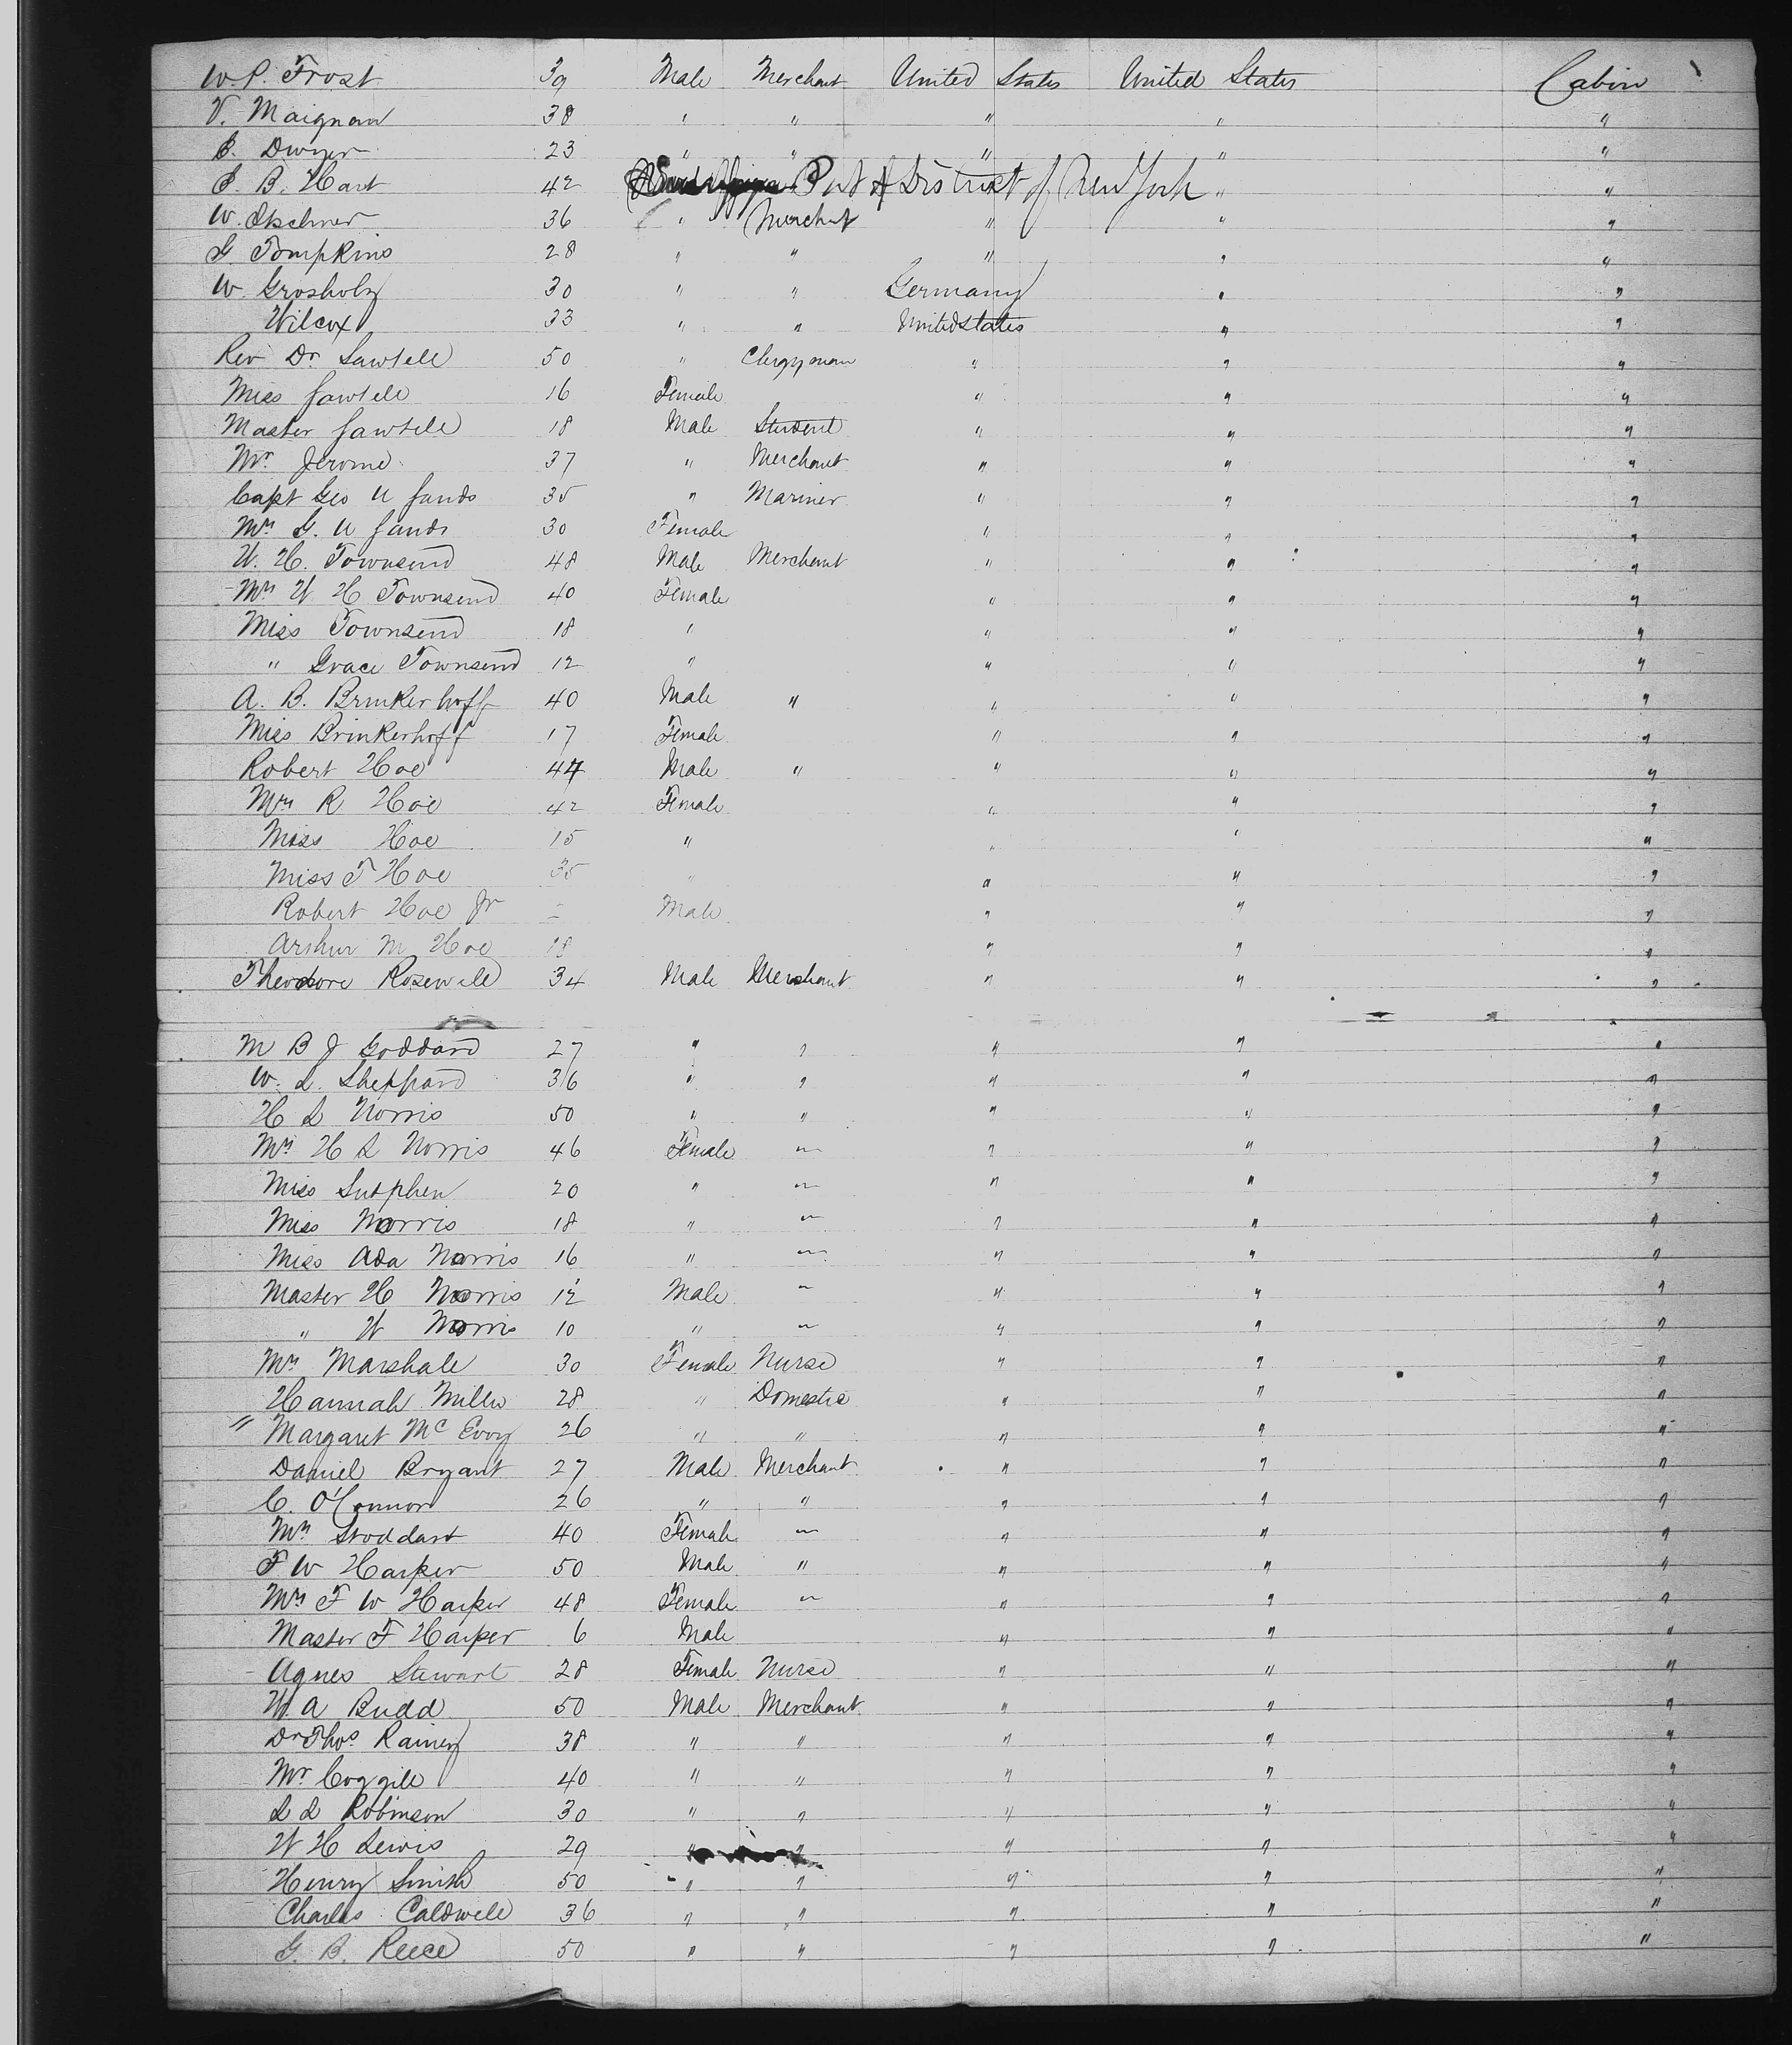 W. P. Frost 39 Male Merchant United States United States Cabin
V. Maignan 38 " " " " "
Dwyer 23 " " " " "
B. Hart 42 Port & District of New York " "
W. 36 " Merchant " " "
G Tompkins 28 " " " " "
W. Grosholz 30 " " Germany " "
Wilcox 33 " " United States " "
Rev Dr. Sawtell 50 " Clergyman " " "
Miss Sawtell 16 Female " " "
Master Sawtell 18 Male Student " " "
Mr. Jerome 37 " Merchant " " "
Capt Geo U Sands 35 " Mariner " " "
Mrs G. U Sands 30 Female " " "
W. H. Townsend 48 Male Merchant " " "
Mrs W H Townsend 40 Female " " "
Miss Townsend 18 " " " "
" Grace Townsend 12 " " " "
A. B. Brinkerhoff 40 Male " " " "
Miss Brinkerhoff 17 Female " " "
Robert Hoe 44 Male " " " "
Mrs R Hoe 42 Female " " "
Miss Hoe 15 " " " "
Miss T Hoe 35 " " " "
Robert Hoe Jr Male " " "
Arthur M Hoe 18 " " "
Theodore Rosewell 34 Male Merchant " " "
M B J Goddard 27 " " " " "
W. L. Sheppard 36 " " " " "
H L Norris 50 " " " " "
Mrs H L Norris 46 Female — " " "
Miss Sutphen 20 " — " " "
Miss Norris 18 " — " " "
Miss Ada Norris 16 " — " " "
Master H Norris 12 Male — " " "
" W Norris 10 " — " " "
Mrs Marshall 30 Female Nurse " " "
Hannah Miller 28 " Domestic " " "
" Margaret McEvoy 26 " " " " "
Daniel Bryant 27 Male Merchant " " "
C. O'Connor 26 " " " " "
Mrs Stoddart 40 Female — " " "
F W Harper 50 Male " " " "
Mrs F W Harper 48 Female — " " "
Master F Harper 6 Male " " "
Agnes Stewart 28 Female Nurse " " "
W. A Budd 50 Male Merchant " " "
Dr Thos. Rainey 38 " " " " "
Mr Coggill 40 " " " " "
L L Robinson 30 " " " " "
W H Lewis 29 " " " " "
Henry Smith 50 " " " " "
Charles Caldwell 36 " " " " "
G. B. Reece 50 " " " " "